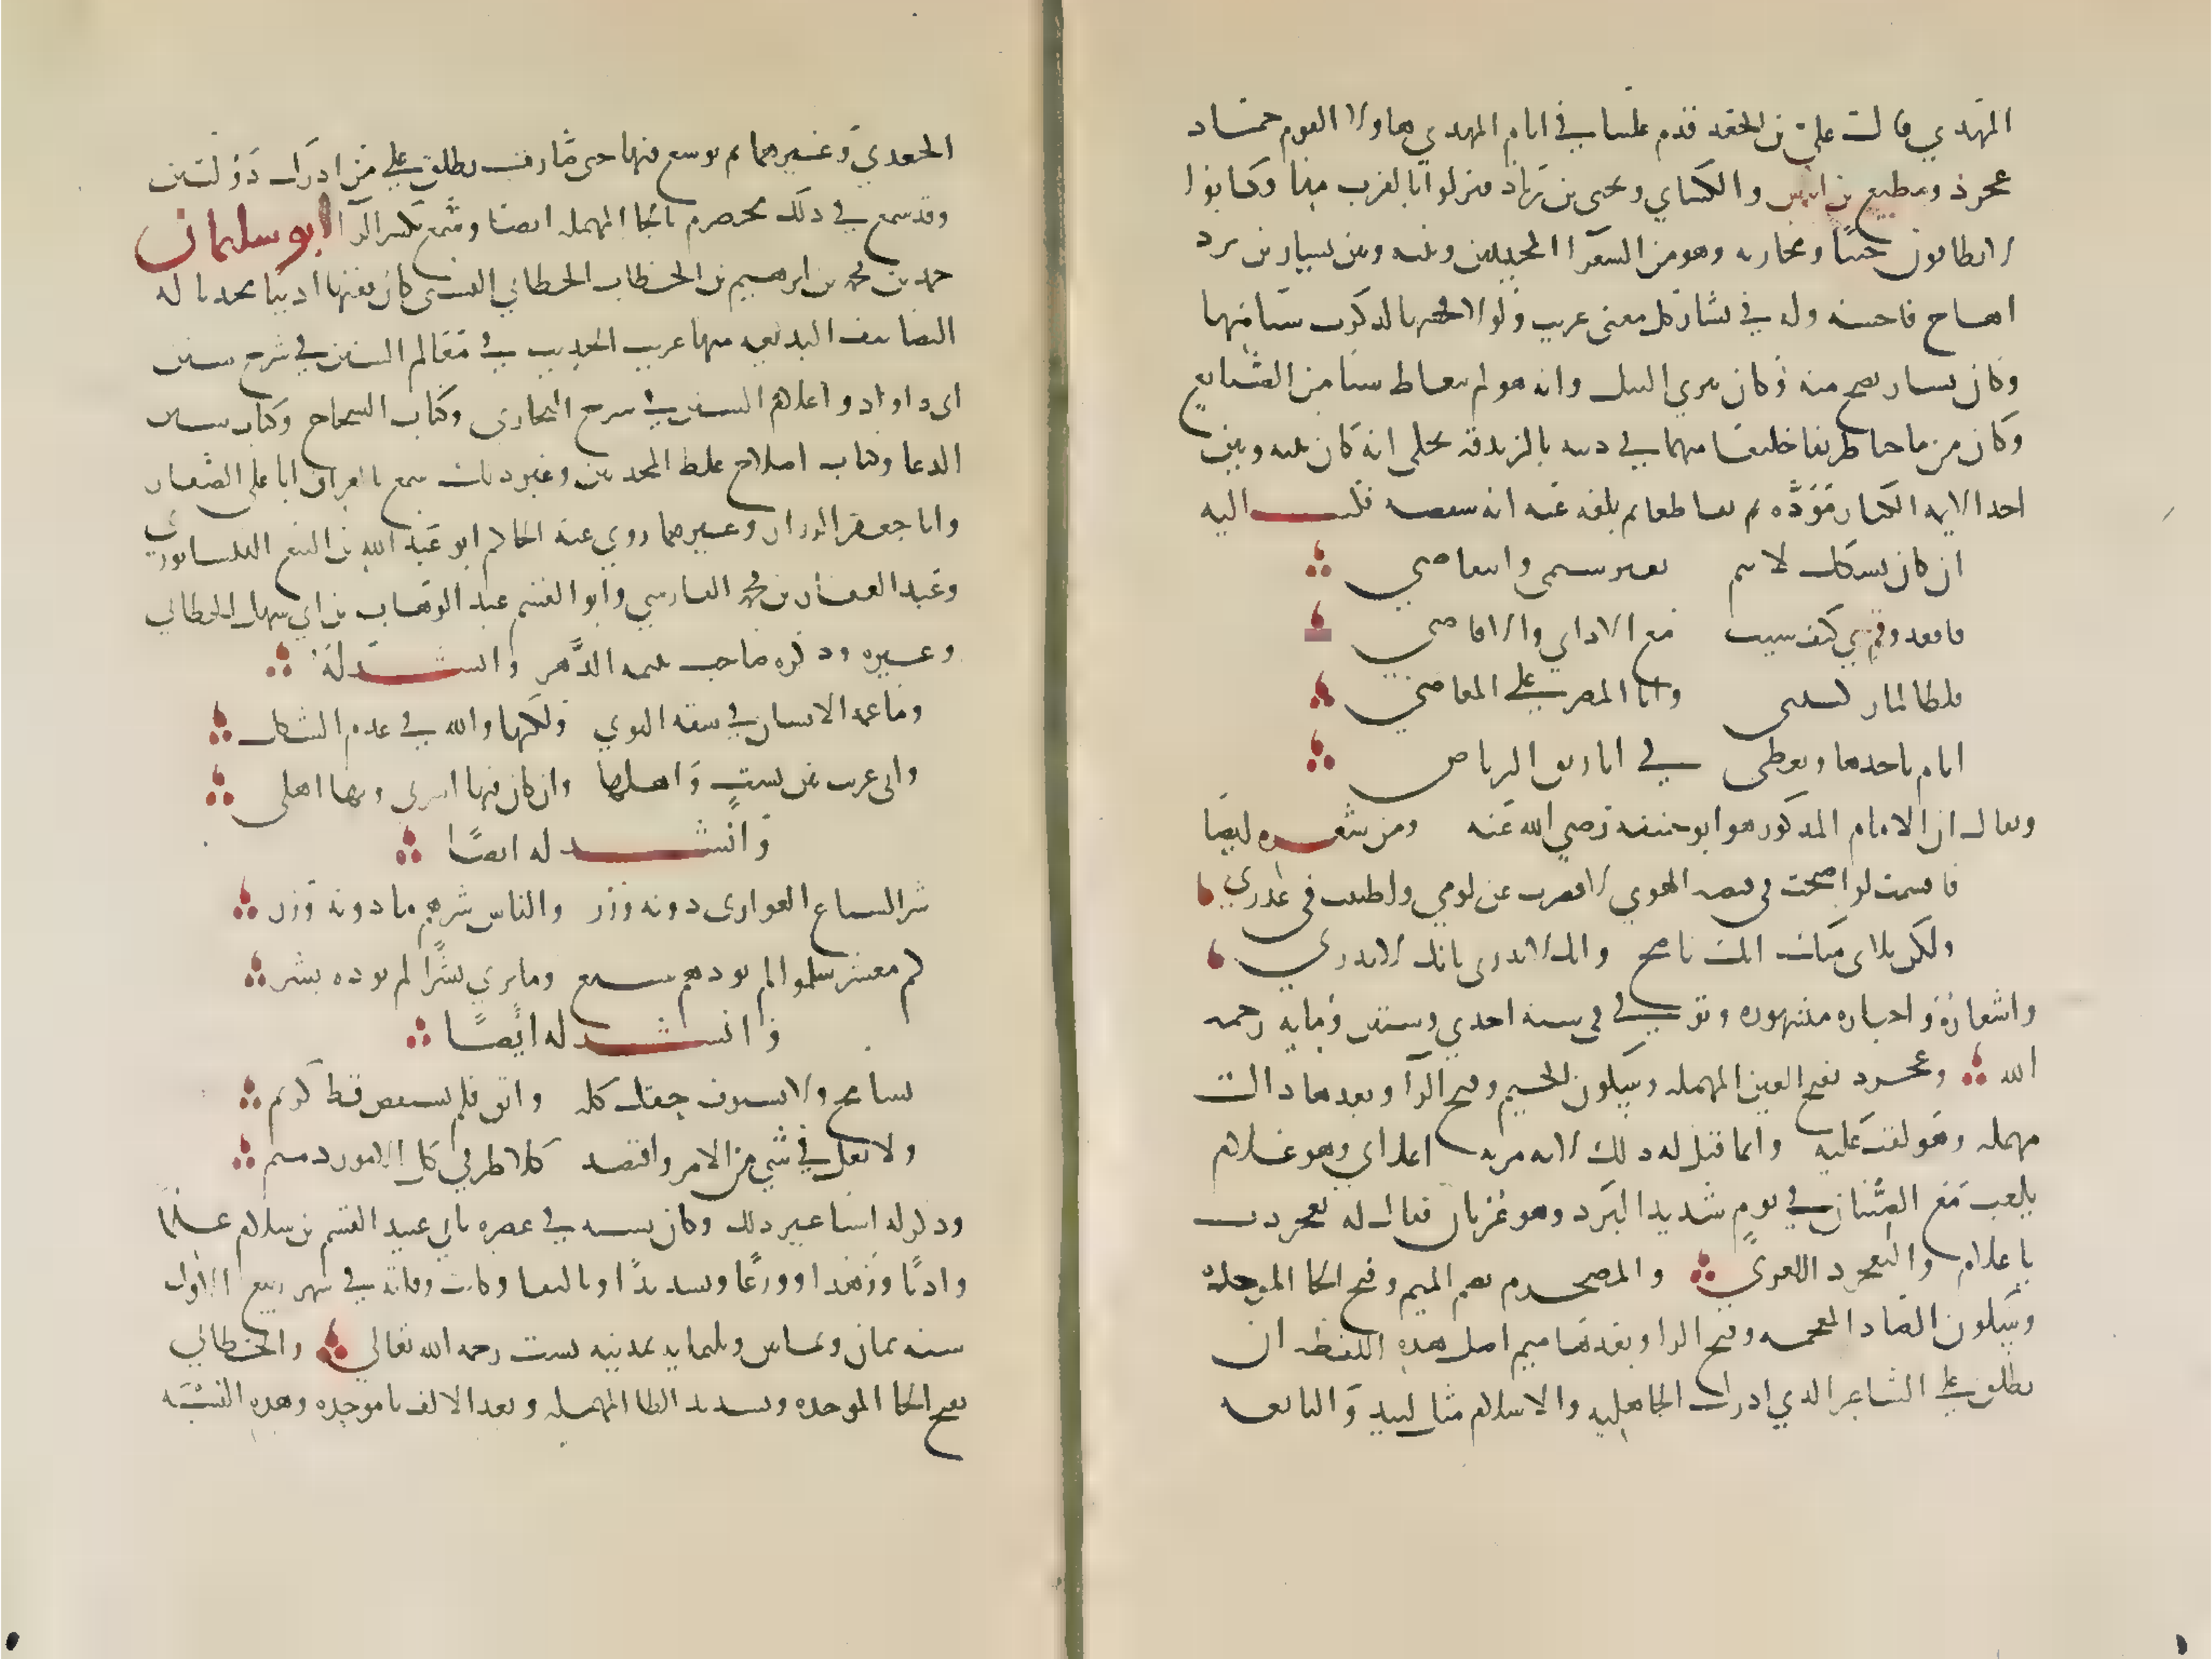 المهدي قالت علي بن الجعد قدم علينا في ايام المهدي هاولا القوم حماد
عجرد ومطيع بن اياس والكناني ويحيى بن زياد فنزلوا بالقرب منا وكانوا
لا يطاقون خبثا ومجانة وهو من الشعرا المجيدين وبينه وبين بشار بن برد
اهاج فاحشه وله في بشار كل معنى غريب ولولا فحشها لذكرت شيا منها
وكان بشار يضج منه وكان يبري النبل وانه هو لم يتعاط شيا من الصنايع
وكان من ماجنا ظريفا خليعا متهما في دينه بالزندقه يحكى انه كان بينه وبين
احد الايمه الكبار موده ثم تقاطعا ثم بلغه عنه انه ينتقصه فكتب اليه
ان كان نسكك لا يتم بغير شتمي وانتقاصي
فاقعد وقم بي كيف شيت مع الاداني والاقاصي
فلطالما زكيتني وانا المصر على المعاصي
ايام ناخذها ونعطي في اباريق الرصاص
ويقال ان الامام المذكور هو ابو حنيفه رضي الله عنه ومن شعره ايضا
فاقسمت لو اصبحت في قبضه الهوي لاقصرت عن لومي واطنبت في عذري
ولكن بلاى منك انك ناصح وانك لا تدرى بانك لا تدري
واشعاره واخباره مشهوره وتوفي في سنه احدي وستين ومايه رحمه
الله وعجرد بفتح العين المهمله وسكون الجيم وفتح الرا وبعدها دالت
مهمله وهو لقب عليه وانما قيل له ذلك لانه مر به اعرابي وهو غلام
يلعب مع الصبيان في يوم شديد البرد وهو عريان فقال له تعجردت
يا غلام والتعجرد التعري والمخضرم بضم الميم وفتح الخا الموحده
وسكون الضاد المعجمه وفتح الرا وبعدها ميم اصل هذه اللفظه ان
يطلق على الشاعر الذي ادرك الجاهليه والاسلام مثل لبيد والنابغه
الجعدي وغيرهما ثم توسع فيها حتى صارت يطلق على من ادرك دولتين
وقد سمع في ذلك محضرم بالحا المهمله ايضا وسمع بكسر الرا ابو سليمان
حمد بن محمد بن ابرهيم بن الخطاب الخطابي البستى كان فقيها اديبا محدثا له
التصانيف البديعه منها غريب الحديث في معالم السنن في شرح سنن
ابى داواد واعلام السنن في شرح البخارى وكتاب الشجاج وكتاب شان
الدعا وكتاب اصلاح غلط المحدثين وغير ذلك سمع بالعراق ابا على الصفار
وابا جعفر الرزاز وغيرهما روي عنه الحاكم ابو عبد الله بن البيع النيسابوري
وعبد الغفار بن محمد الفارسي وابو القسم عبد الوهاب بن ابي سهل الخطابي
وغيره وذكره صاحب يتيمه الدهر وانشد له
وما غمه الانسان في شقه النوي ولكنها والله في عدم الشكل
وانى غريب بين بست واهلها وان كان فيها اسرتي وبها اهلى
وانشد له ايضا
شر السباع العوادى دونه وزر والناس شرهم ما دونه وزر
كم معشر سلموا لم يوذهم سبع وما يرى بشرا لم يوذه بشر
وانشد له ايضا
تسامح ولا تستوف حقك كله وابق فلم يستقص قط كريم
ولا تغل في شي من الامر واقتصد كلا طرفي كل الامور ذميم
وذكر له اشيا غير ذلك وكان يشبه في عصره بابي عبيد القسم بن سلام علما
وادبا وزهدا وورعا وتدريسا وتاليفا وكانت وفاته في شهر ربيع الاول
سنه ثمان وثمانين وثلثمايه بمدينه بست رحمه الله تعالي والخطابي
بفتح الخا الموحده وتشديد الطا المهمله وبعد الالف با موحده وهذه النسبه